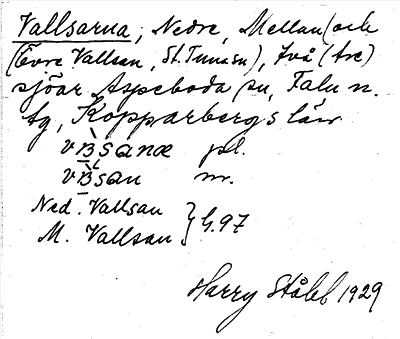 Vallsarna, Nedre, Mellan (och
(Övre Vallsan, St. Tuna sn), två (tre)
sjöar Aspeboda sn, Falu n.
tg, Kopparbergs län
pl.
Ned. Vallsan
M. Vallsan } G.97
Harry Ståhl 1929